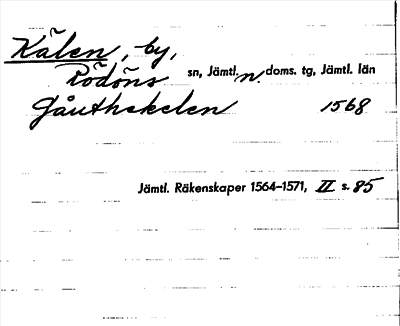 Kälen, by,
Rödöns sn, Jämtl. n. doms. tg, Jämtl. län
Gåuthekelen 1568
Jämtl. Räkenskaper 1564–1571, II s. 85